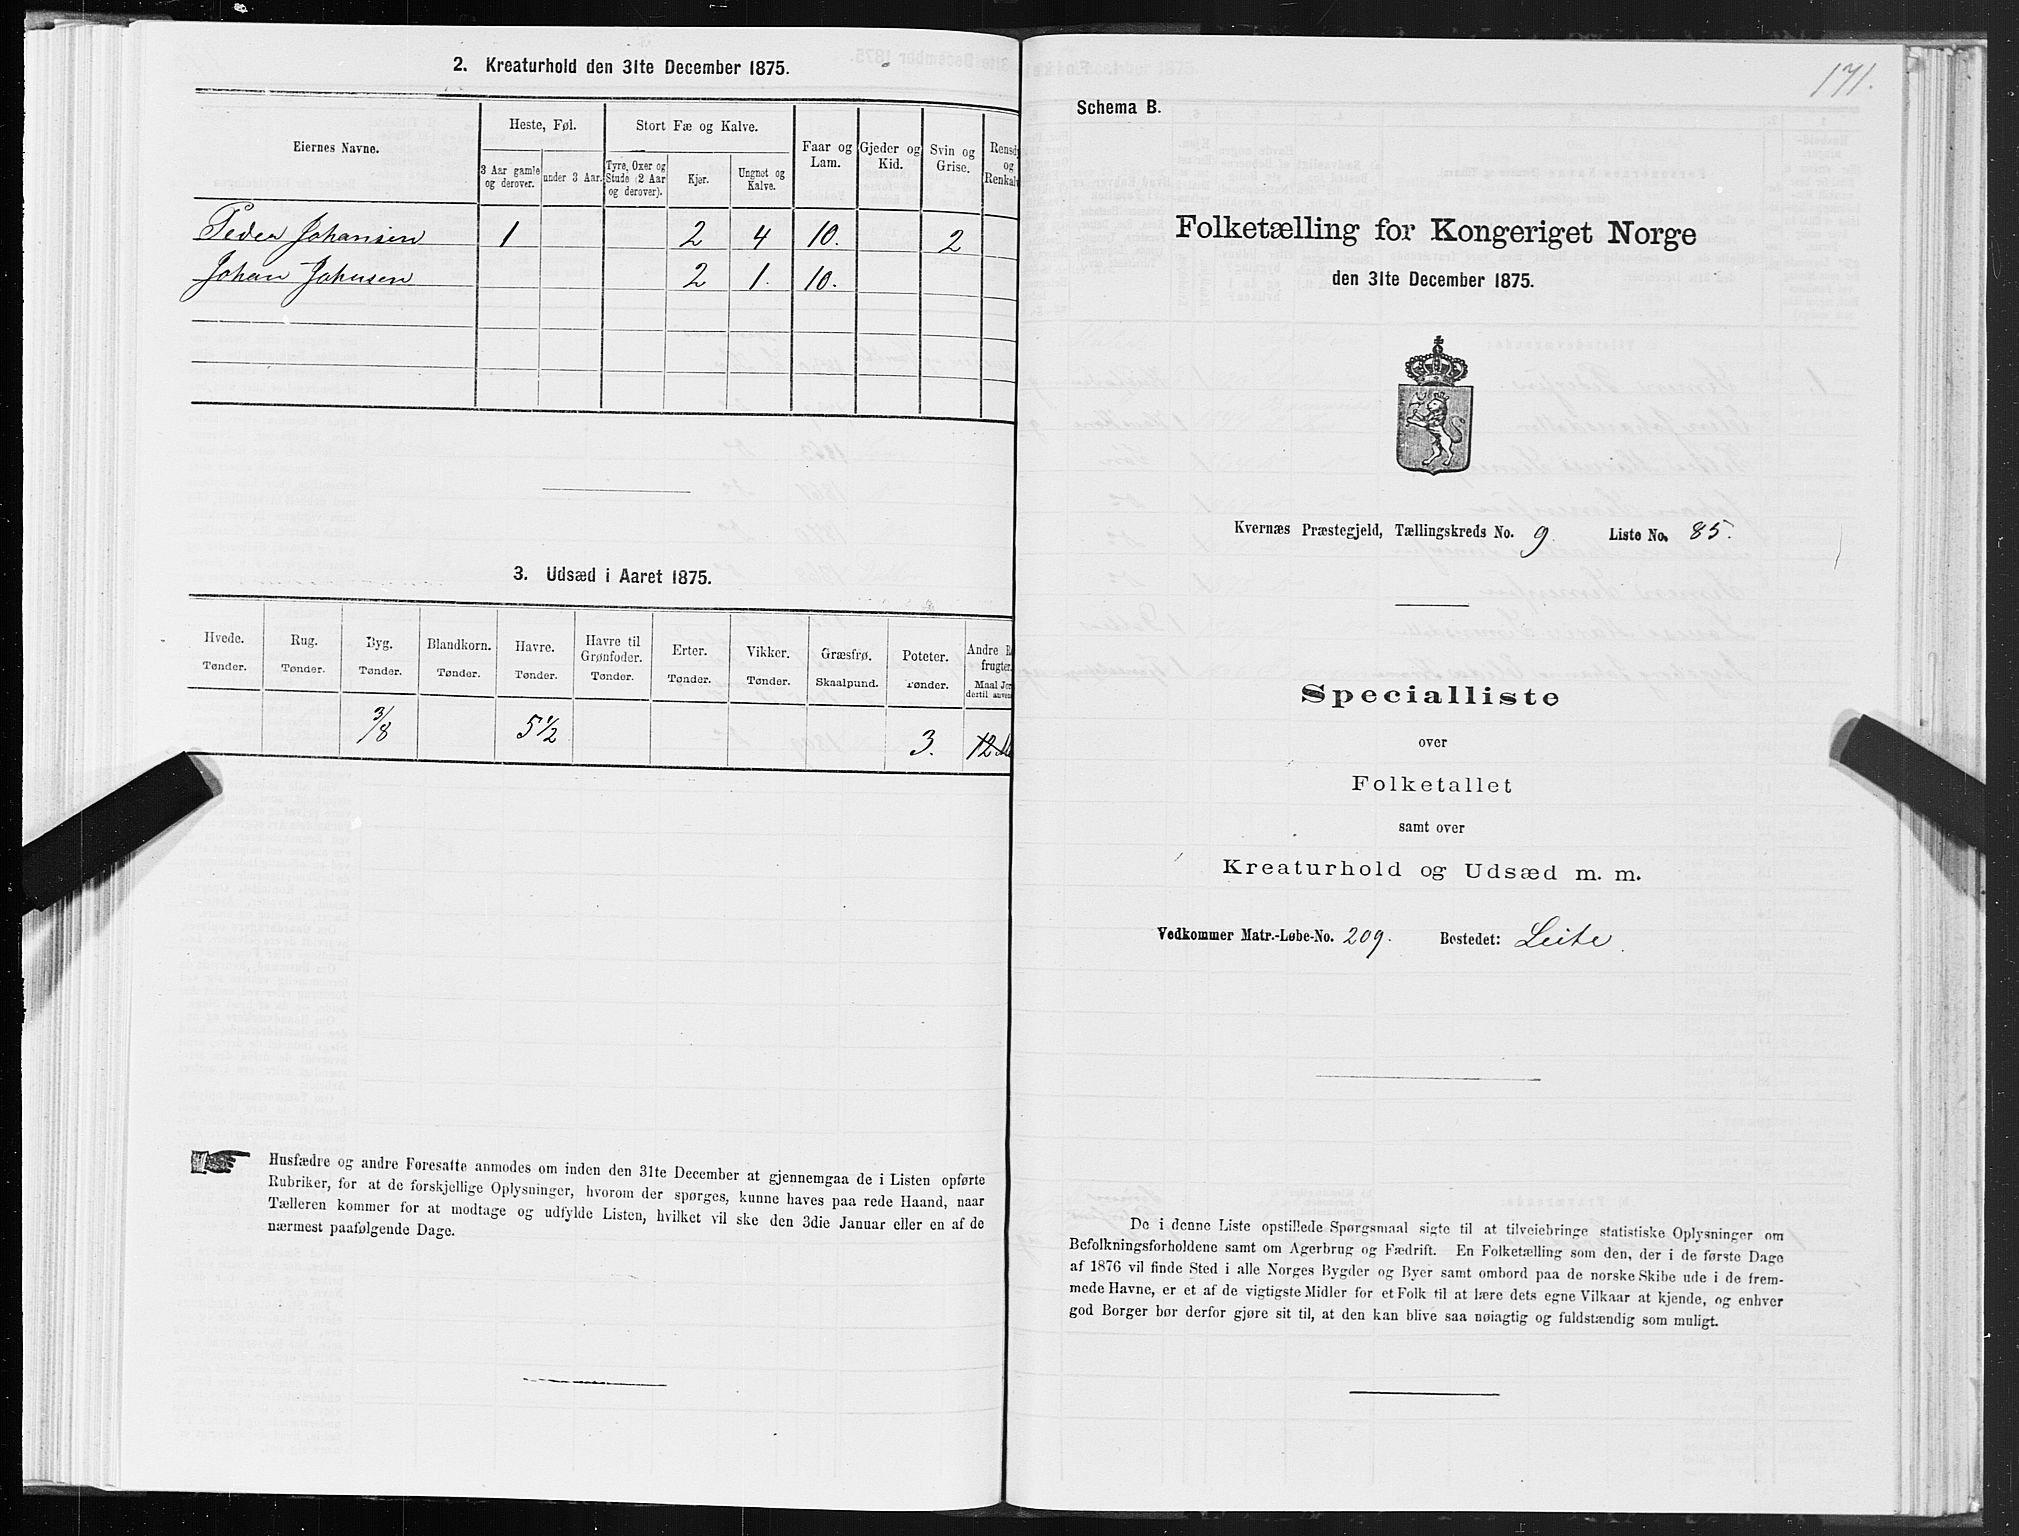 2. Kreaturhold den 31te December 1875.
Eiernes Navne.
Heste, Føl.
Stort Fæ og Kalve.
Faar og Lam.
Gjeder og Kid.
Svin og Grise.
og
3 Aar gamle og derover.
under 3 Aar.
Tyre, Oxer og Stude (2 Aar og derover).
Kjør.
Ungnøt og Kalve.
Peder Johansen 1 2 4 10. 2
Johan Johnsen 2 1. 10.
3. Udsæd i Aaret 1875.
Hvede. Rug. Byg. Blandkorn. Havre. Havre til Grønfoder. Erter. Vikker. Græsfrø. Poteter. Andre
Tønder. Tønder. Tønder. Tønder. Tønder. Tønder. Tønder. Tønder. Skaalpund. Tønder. Maal
3/8 5 1/2 3.
Husfædre og andre Foresatte anmodes om inden den 31te December at gjennemgaa de i Listen opførte
Rubriker, for at de forskjellige Oplysninger, hvorom der spørges, kunne haves paa rede Haand, naar
Tælleren kommer for at modtage og udfylde Listen, hvilket vil ske den 3die Januar eller en af de
nærmest paafølgende Dage.
171.
Schema B.
Folketælling for Kongeriget Norge
den 31te December 1875.
Kvernæs Præstegjeld, Tællingskreds No. 9. Liste No. 85.
Specialliste
over
Folketallet
samt over
Kreaturhold og Udsæd m. m.
Vedkommer Matr.-Løbe-No. 209. Bostedet: Leite.
De i denne Liste opstillede Spørgsmaal sigte til at tilveiebringe statistiske Oplysninger om
Befolkningsforholdene samt om Agerbrug og Fædrift. En Folketælling som den, der i de første Dage
af 1876 vil finde Sted i alle Norges Bygder og Byer samt ombord paa de norske Skibe ude i de frem-
mede Havne, er et af de vigtigste Midler for et Folk til at lære dets egne Vilkaar at kjende, og enhver
god Borger bør derfor gjøre sit til, at den kan blive saa nøiagtig og fuldstændig som muligt.